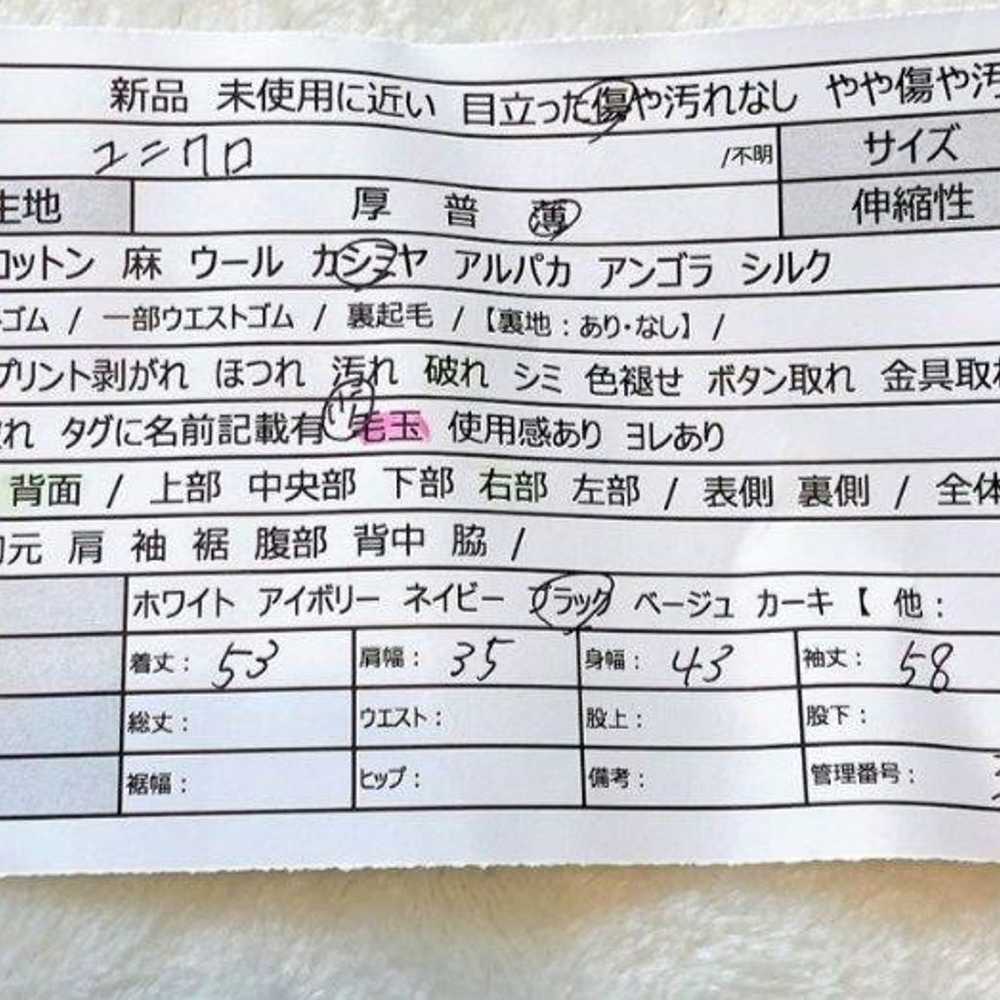 新品 未使用に近い 目立った傷や汚れなし やや傷や汚
ユニクロ /不明 サイズ
生地 厚 普 薄 伸縮性
コットン 麻 ウール カシミヤ アルパカ アンゴラ シルク
ゴム / 一部ウエストゴム / 裏起毛 / 【裏地：あり・なし】 /
プリント剥がれ ほつれ 汚れ 破れ シミ 色褪せ ボタン取れ 金具取れ
れ タグに名前記載有 毛玉 使用感あり ヨレあり
背面 / 上部 中央部 下部 右部 左部 / 表側 裏側 / 全体
元 肩 袖 裾 腹部 背中 脇 /
ホワイト アイボリー ネイビー ブラック ベージュ カーキ 【 他：
着丈： 53 肩幅： 35 身幅： 43 袖丈： 58
総丈： ウエスト： 股上： 股下：
裾幅： ヒップ： 備考： 管理番号：